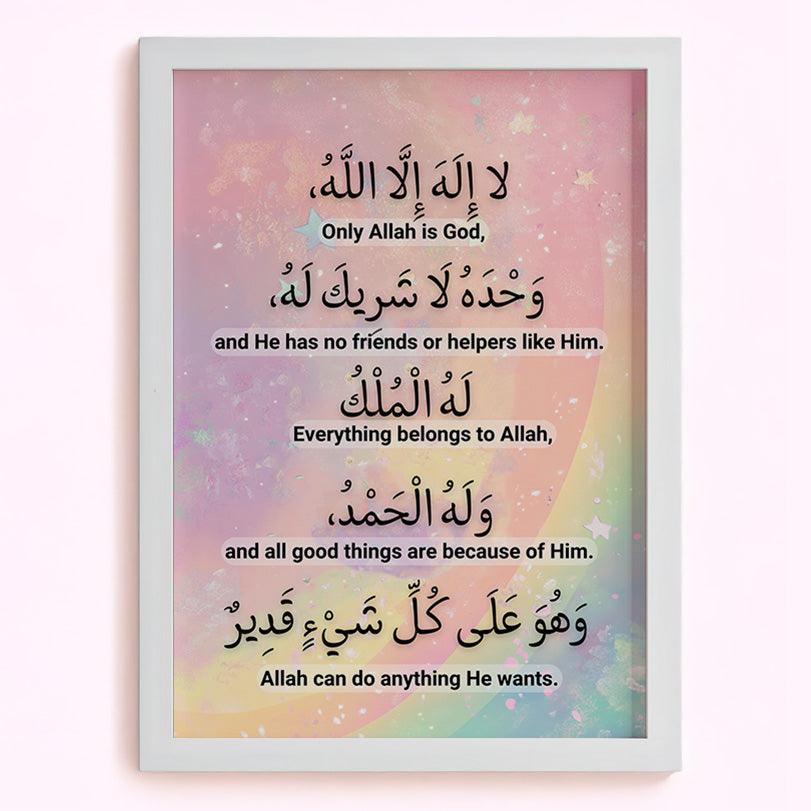 لا إِلَهَ إِلَّا اللَّهُ،
Only Allah is God,
وَحْدَهُ لَا شَرِيكَ لَهُ،
and He has no friends or helpers like Him.
لَهُ الْمُلْكُ
Everything belongs to Allah,
وَلَهُ الْحَمْدُ،
and all good things are because of Him.
وَهُوَ عَلَى كُلِّ شَيْءٍ قَدِيرٌ
Allah can do anything He wants.